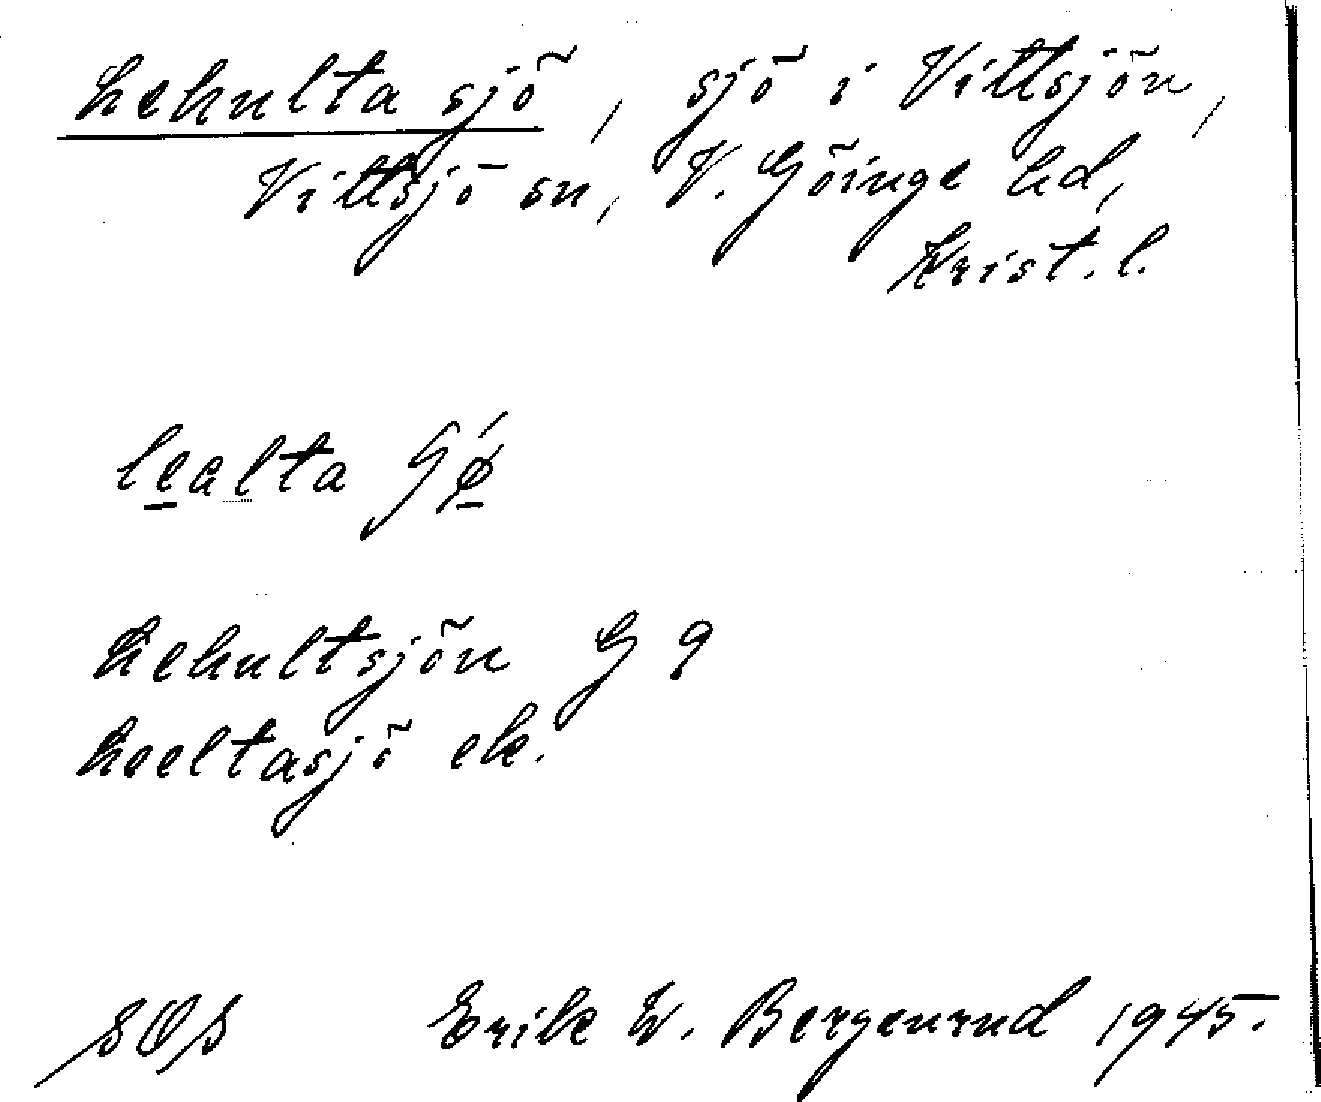 Lehulta sjö, sjö i Vittsjön,
Vittsjö sn, V. Göinge hd,
Krist. l.
lealta
Lehultsjön G 9
Leeltasjö ek.
SOS Erik W. Bergenrud 1945.